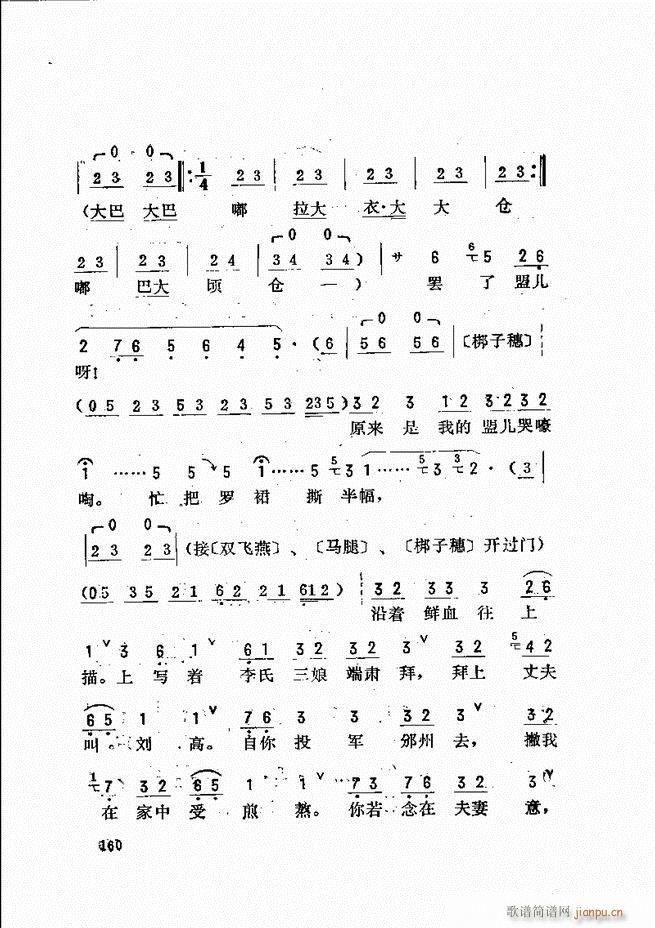 0 0
2 3 2 3 1/4 2 3 2 3 2 3 2 3 2 3
（大巴 大巴 嘟 拉大 衣·大 大 仓
0 0
2 3 2 3 2 3 3 4 3 4 ) サ 6 6 5 2 6
嘟 巴大 顷 仓 一） 罢 了 盟儿
0 0
2 7 6 5 6 4 5 · ( 6 5 6 5 6 〔梆子穗〕
呀！
( 0 5 2 3 5 3 2 3 2 3 5 3 2 3 5 ) 3 2 3 3 2 3 2 3 2
原来 是 我的 盟儿哭嚎
1 …… 5 5 5 1 …… 5 5 3 1 …… 5 3 3 2 · ( 3 )
啕。 忙 把 罗 裙 撕 半幅，
0 0
2 3 2 3 (接〔双飞燕〕、〔马腿〕、〔梆子穗〕开过门)
( 0 5 3 5 2 1 6 2 2 1 6 1 2 ) 3 2 3 3 3 2 6
沿着 鲜血 往 上
1 ∨ 3 6 1 ∨ 6 1 3 2 3 2 3 ∨ 3 2 5 4 2
描。上 写 着 李氏 三娘 端肃 拜，拜上 丈夫
6 5 1 1 ∨ 7 6 3 3 3 2 3 ∨ 3 2
叫。刘 高。自你 投 军 邠州 去， 撇我
1 7 3 2 6 5 1 1 ∨ 7 3 7 6 3 2 3 ∨
在 家中 受 煎 熬。你若 念在 夫妻 意，
160
歌谱简谱网 jianpu.cn